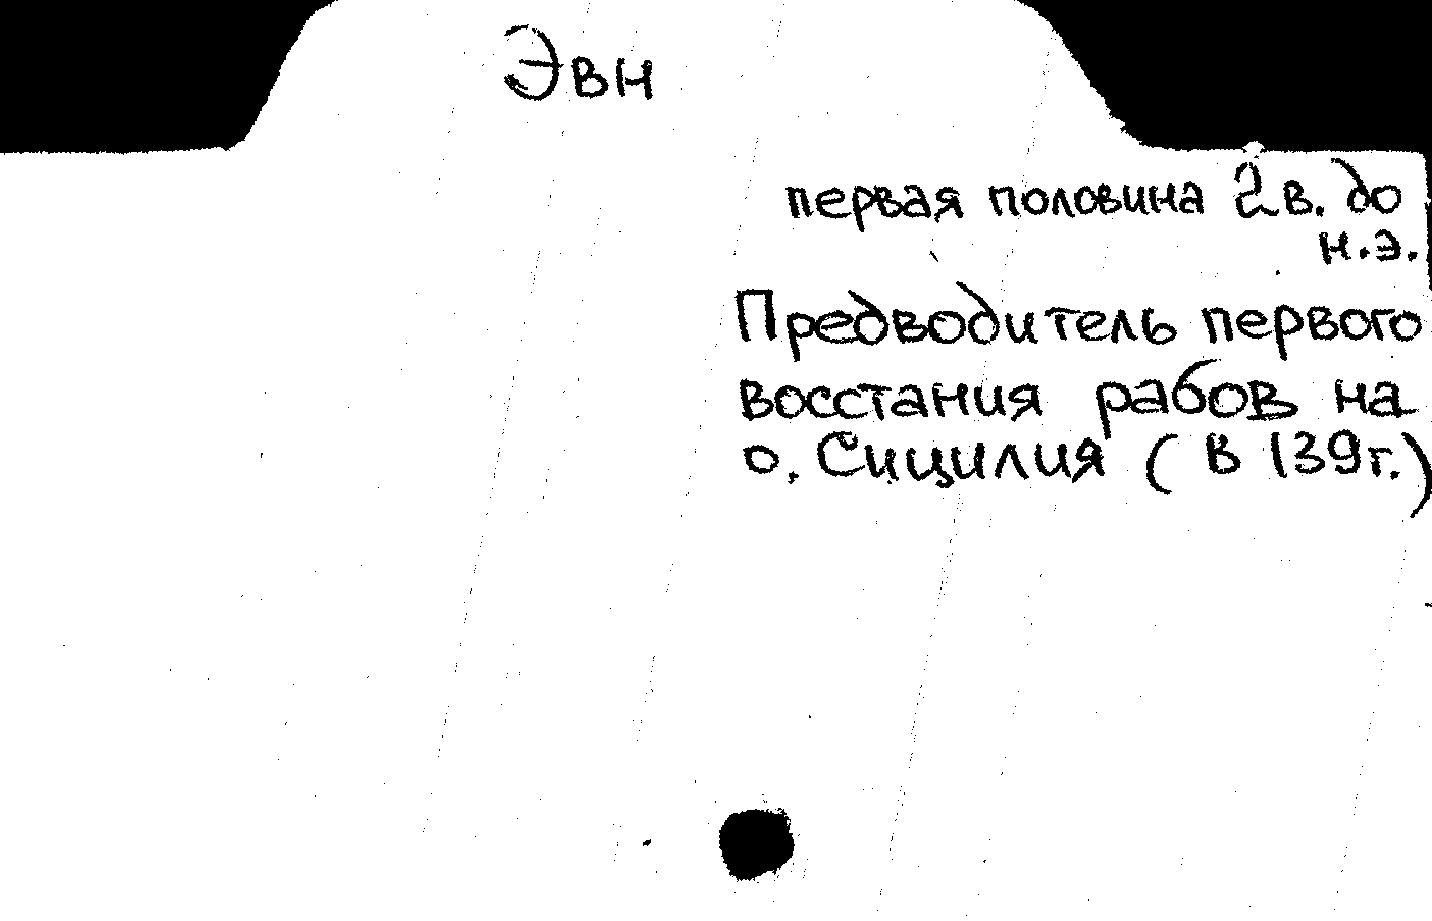 Эвн
первая половина 2 в. до
н.э.
Предводитель первого
восстания рабов на
о. Сицилия ( в 139г.)